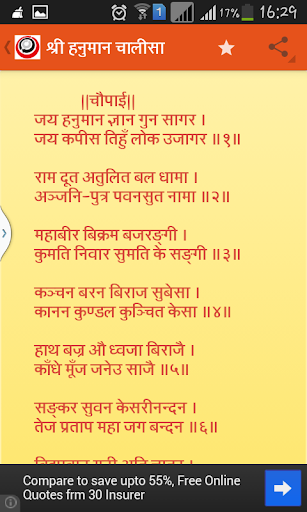 17% 16:29
श्री हनुमान चालीसा
||चौपाई||
जय हनुमान ज्ञान गुन सागर ।
जय कपीस तिहुँ लोक उजागर ॥१॥
राम दूत अतुलित बल धामा ।
अञ्जनि-पुत्र पवनसुत नामा ॥२॥
महाबीर बिक्रम बजरङ्गी ।
कुमति निवार सुमति के सङ्गी ॥३॥
कञ्चन बरन बिराज सुबेसा ।
कानन कुण्डल कुञ्चित केसा ॥४॥
हाथ बज्र औ ध्वजा बिराजै ।
काँधे मूँज जनेउ साजै ॥५॥
सङ्कर सुवन केसरीनन्दन ।
तेज प्रताप महा जग बन्दन ॥६॥
Compare to save upto 55%, Free Online
Quotes frm 30 Insurer